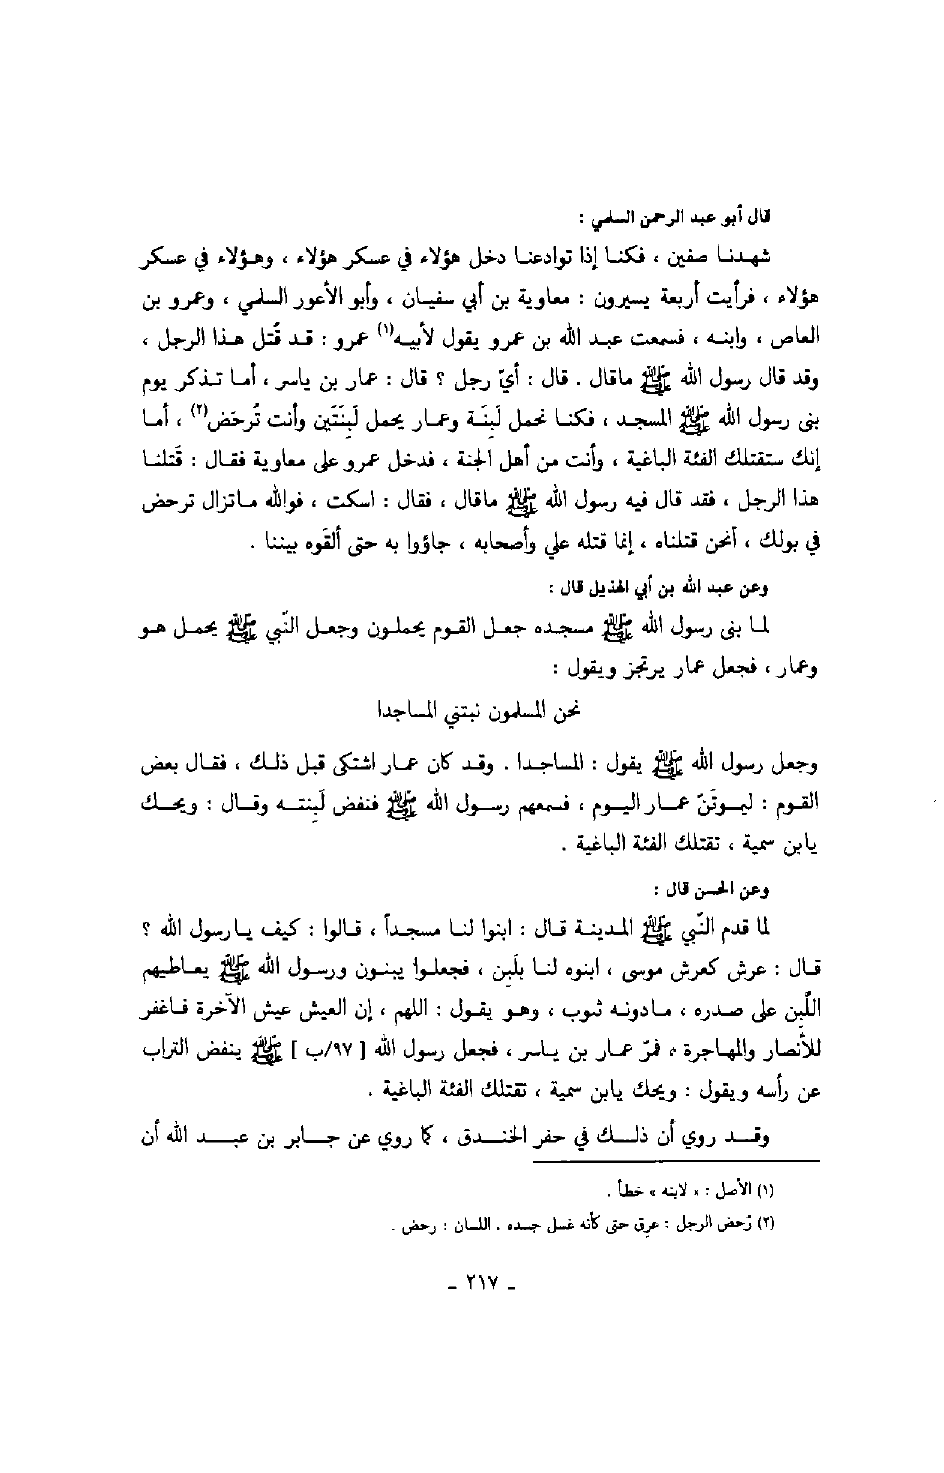 قال أبو عبد الرحمن السلمي :
شهدنا صفين ، فكنا إذا توادعنا دخل هؤلاء في عسكر هؤلاء ، وهؤلاء في عسكر
هؤلاء ، فرأيت أربعة يسيرون : معاوية بن أبي سفيان ، وأبو الأعور السلمي ، وعمرو بن
العاص ، وابنه ، فسمعت عبد الله بن عمرو يقول لأبيه(١) عمرو : قد قُتل هذا الرجل ،
وقد قال رسول الله ﷺ ماقال . قال : أيّ رجل ؟ قال : عمار بن ياسر ، أما تذكر يوم
بنى رسول الله ﷺ المسجد ، فكنا نحمل لَبِنَة وعمار يحمل لَبِنَتَين وأنت تُرحَض(٢) ، أما
إنك ستقتلك الفئة الباغية ، وأنت من أهل الجنة ، فدخل عمرو على معاوية فقال : قَتلنا
هذا الرجل ، فقد قال فيه رسول الله ﷺ ماقال ، فقال : اسكت ، فوالله ماتزال ترحض
في بولك ، أنحن قتلناه ، إنما قتله علي وأصحابه ، جاؤوا به حتى ألقَوه بيننا .
وعن عبد الله بن أبي الهذيل قال :
لما بنى رسول الله ﷺ مسجده جعل القوم يحملون وجعل النّبي ﷺ يحمل هو
وعمار ، فجعل عمار يرتجز ويقول :
نحن المسلمون نبتني المساجدا
وجعل رسول الله ﷺ يقول : المساجدا . وقد كان عمار اشتكى قبل ذلك ، فقال بعض
القوم : ليموتَنّ عمار اليوم ، فسمعهم رسول الله ﷺ فنفض لَبِنته وقال : ويحك
يابن سمية ، تقتلك الفئة الباغية .
وعن الحسن قال :
لما قدم النّبي ﷺ المدينة قال : ابنوا لنا مسجداً ، قالوا : كيف يارسول الله ؟
قال : عرش كعرش موسى ، ابنوه لنا بلَبِن ، فجعلوا يبنون ورسول الله ﷺ يعاطيهم
اللَّبِن على صدره ، مادونه ثوب ، وهو يقول : اللهم ، إن العيش عيش الآخرة فاغفر
للأنصار والمهاجرة ، فمرّ عمار بن ياسر ، فجعل رسول الله [ ٩٧/ب ] ﷺ ينفض التراب
عن رأسه ويقول : ويحك يابن سمية ، تقتلك الفئة الباغية .
وقد روي أن ذلك في حفر الخندق ، كما روي عن جابر بن عبد الله أن
(١) الأصل : « لابنه » خطأ .
(٢) رُحض الرجل : عرق حتى كأنه غسل جسده . اللسان : رحض .
ـ ٢١٧ ـ